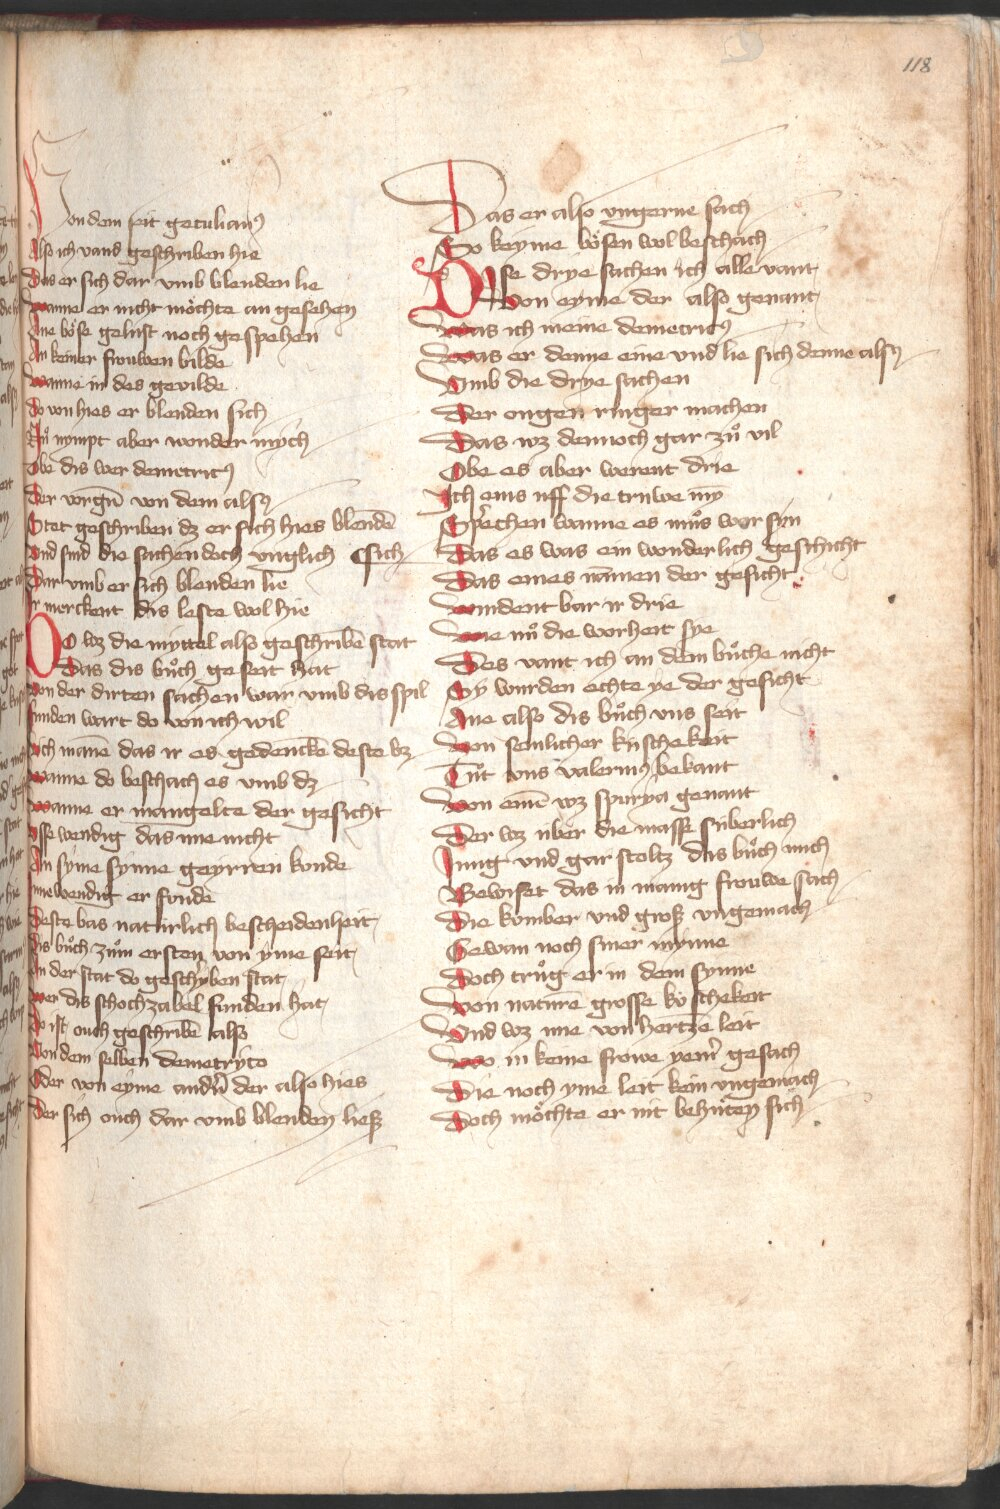 118
Von dem seit getulianus
Also ich vand geschriben hie
Das er sich dar vmb blenden lie
Wanne er nicht möchte an gesehen
Ane böse gelust noch gespehen
An keiner frouwen bilde
Wanne in des gevilde
Do von hies er blenden sich
Nů nympt aber wonder mych
Obe dis wer demetricus
Der vorgn̄ von dem alsus
Stat geschriben dz er sich hies blendē
Vnd sind die sachen doch vnglich
sich
Dar vmb er sich blenden lie
Ir merckent dis leste wol hie
Do wz die myttel also geschribē stat
Das dis bůch geseit hat
Von der dirten sachen war vmb das spil
Funden wart do von ich wil
Vch manē das ir es gedenckē deste bz
Wanne do beschach es vmb dz
Wanne er mangelte der gesicht
Vsse wendig das ine nicht
An syme synne geyrren konde
Inne wendig er fonde
Deste bas naturlich bescheidenheit
Dis bůch zům ersten von yme seit
An der stat do geschryben stat
Wer dis schochzabel funden hat
Do ist ouch geschribē also
Von dem selben demetryco
Oder von eyme andn̄ der also hies
Der sich ouch dar vmb blenden liesz
Das er also vngerne sach
So keyme bösen wol beschach
Dise drye sachen ich alle vant
Von eyme der also genant
Was ich meine demetricus
Was er denne eine vnd lie sich denne alsus
Vmb die drye sachen
Der ougen ringer machen
Das wz dennoch gar zů vil
Obe es aber werent drie
Ich ems vff die truwe my
Sprechen wanne es můs wor syn
Das es was ein wonderlich geschicht
Das eines namen der gesicht
Windent bar ir drie
Wie nů die worheit sye
Des vant ich an dem bůche nicht
Sy wurden echte ye der gesicht
Ane also dis bůch vns seit
Von semlicher küschekeit
Tůt vns valerius bekant
Von eimē wz spurya genant
Der wz über die masse süberlich
Jung vnd gar stoltz das bůch mich
Bewiset das in manig frouwe sach
Die komber vnd grosz vngemach
Gewan noch siner mynne
Doch trůg er in dem synne
Von nature grosse köschekeit
Vnd wz ime von hertzē leit
Wo in keine frowe yem̄ gesach
Die noch yme leit kein vngemach
Doch möchte er nit behüten sich